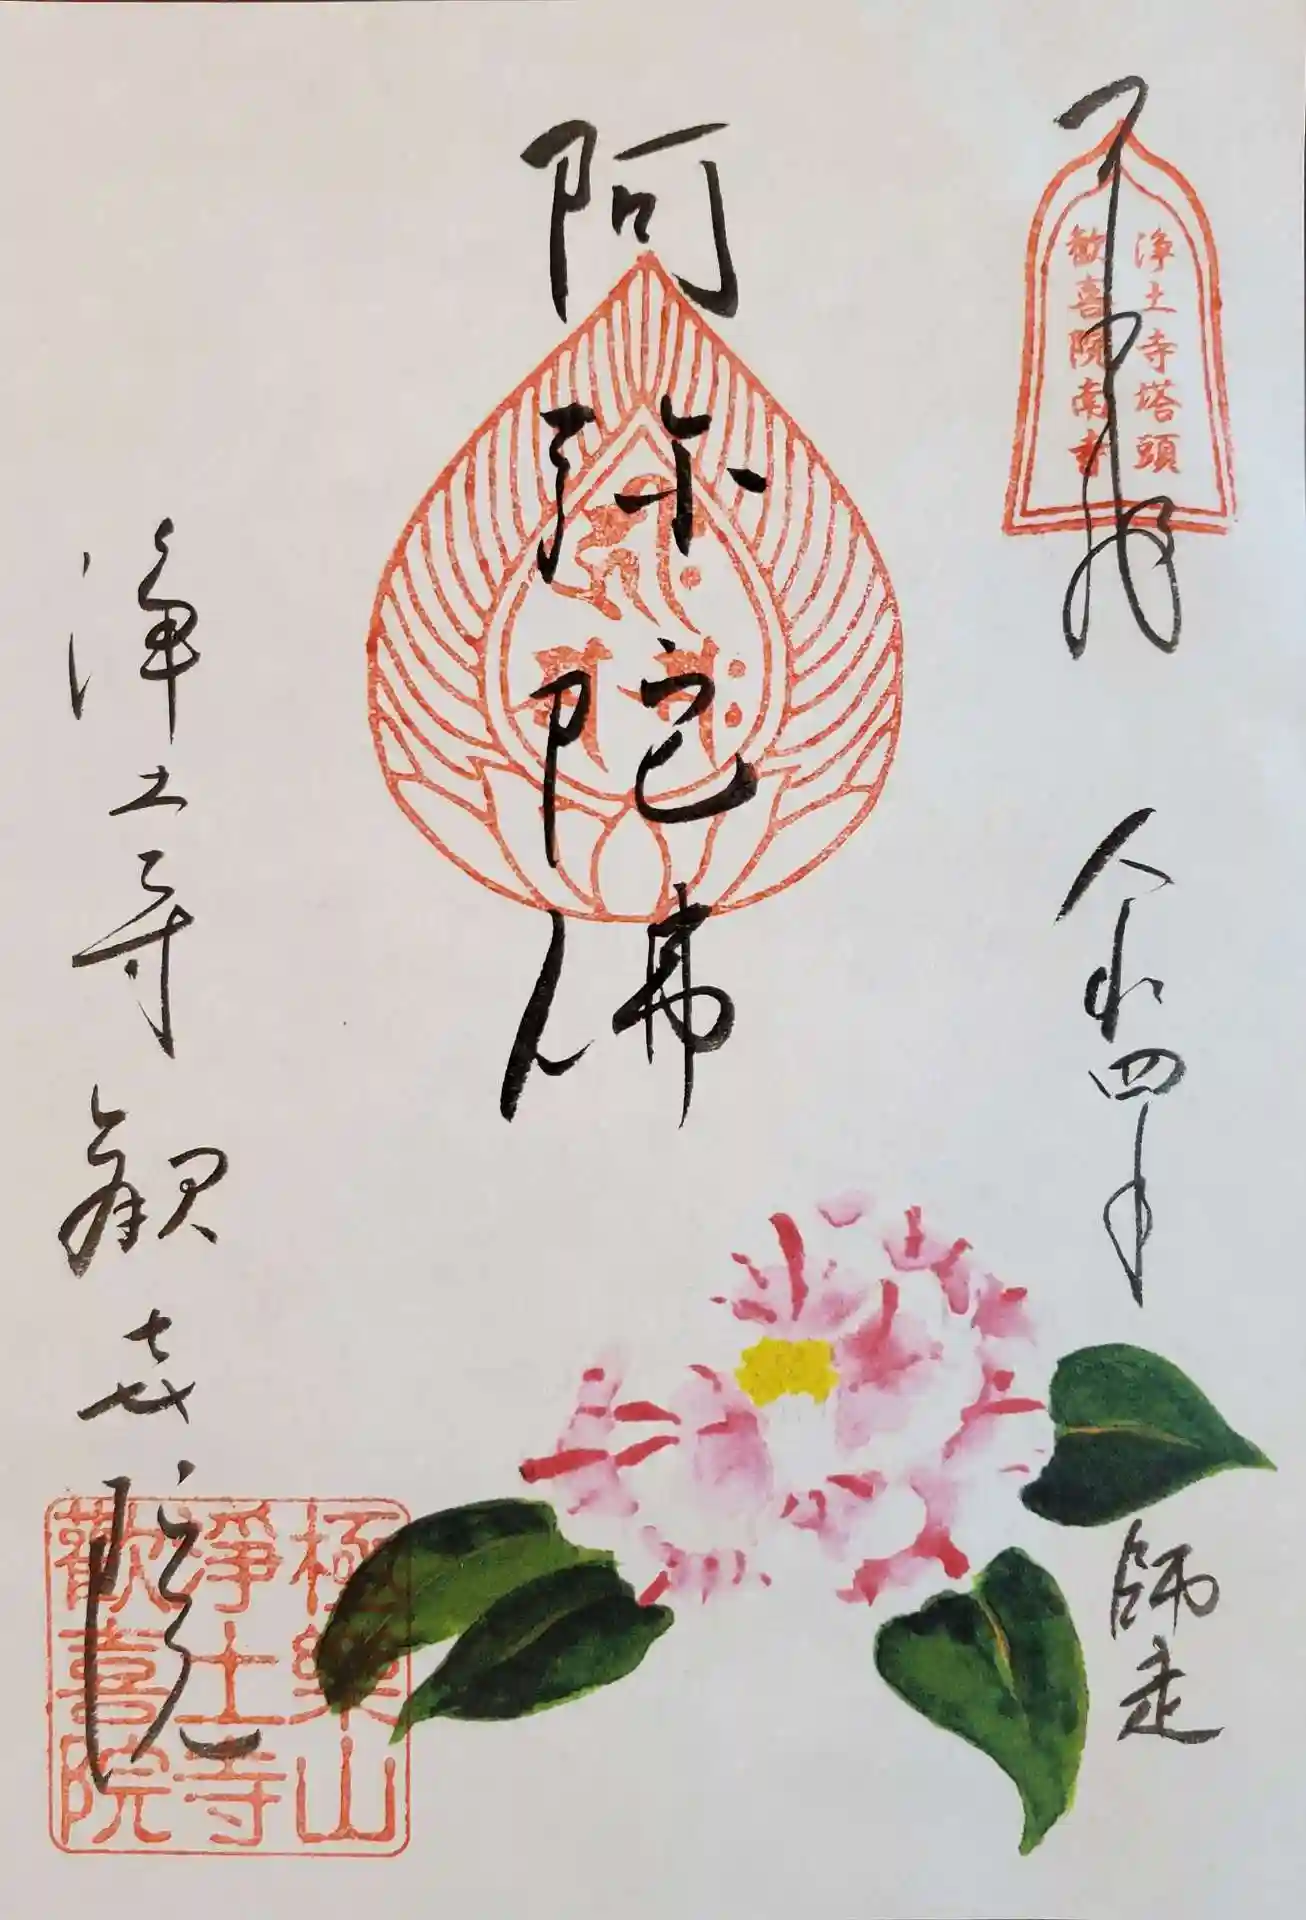 奉拝
令和四年
師走
浄土寺塔頭
歓喜院南寺
阿弥陀佛
浄土寺
歓喜院
極樂山
淨土寺
歡喜院